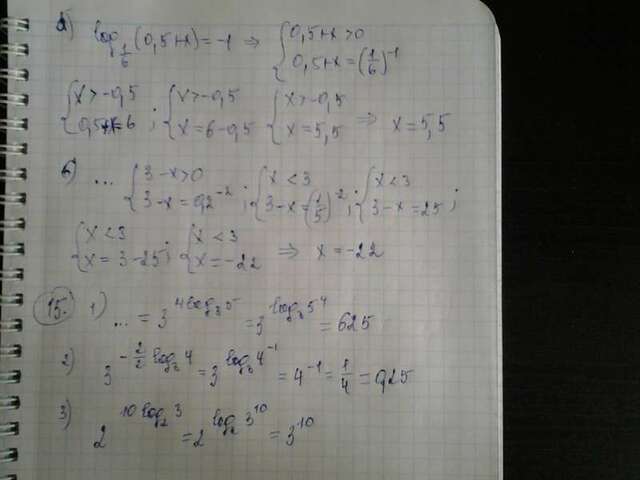 а) log_{1/6}(0,5+x) = -1 ⇒ { 0,5+x>0
0,5+x=(1/6)^{-1}
{ x>-0,5 ; { x>-0,5 { x>-0,5
0,5+x=6 x=6-0,5 x=5,5 ⇒ x=5,5
б) ... { 3-x>0 ; { x<3 ; { x<3 ;
3-x=0,2^{-2} 3-x=(1/5)^{-2} 3-x=25
{ x<3 ; { x<3
x=3-25 x=-22 ⇒ x=-22
15. 1) ... = 3^{4log_3 5} = 3^{log_3 5^4} = 625
2) 3^{-2/2 log_3 4} = 3^{log_3 4^{-1}} = 4^{-1} = 1/4 = 0,25
3) 2^{10 log_2 3} = 2^{log_2 3^{10}} = 3^{10}